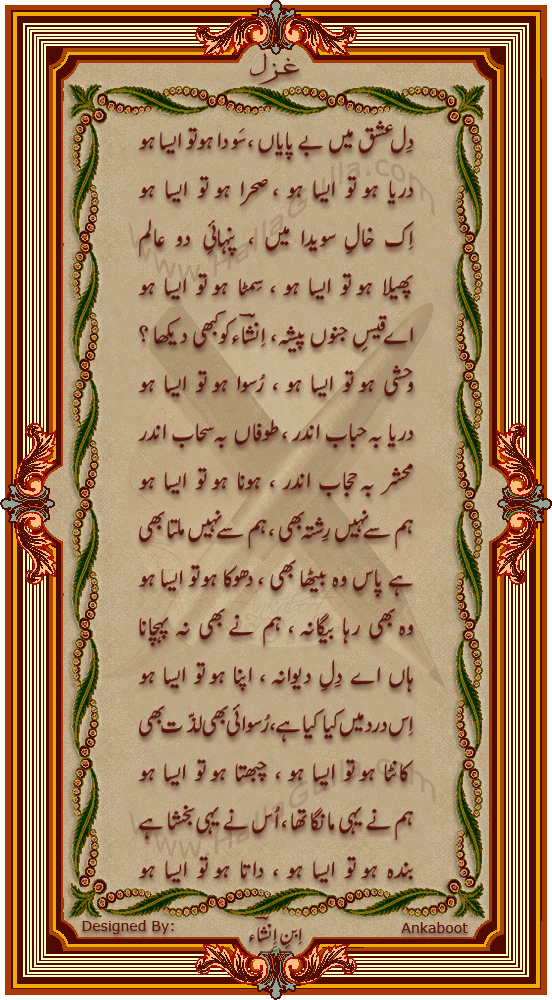 غزل
دِل عشق میں بے پایاں ، سَودا ہو تو ایسا ہو
دریا ہو تو ایسا ہو ، صحرا ہو تو ایسا ہو
اِک خالِ سویدا میں ، پنہائیِ دو عالم
پھیلا ہو تو ایسا ہو ، سِمٹا ہو تو ایسا ہو
اے قیسِ جنوں پیشہ ، اِنشاء کو کبھی دیکھا ؟
وحشی ہو تو ایسا ہو ، رُسوا ہو تو ایسا ہو
دریا بہ حباب اندر ، طوفاں بہ سحاب اندر
محشر بہ حجاب اندر ، ہونا ہو تو ایسا ہو
ہم سے نہیں رِشتہ بھی ، ہم سے نہیں ملتا بھی
ہے پاس وہ بیٹھا بھی ، دھوکا ہو تو ایسا ہو
وہ بھی رہا بیگانہ ، ہم نے بھی نہ پہچانا
ہاں اے دِلِ دیوانہ ، اپنا ہو تو ایسا ہو
اِس درد میں کیا کیا ہے ، رُسوائی بھی لذّت بھی
کانٹا ہو تو ایسا ہو ، چبھتا ہو تو ایسا ہو
ہم نے یہی مانگا تھا ، اُس نے یہی بخشا ہے
بندہ ہو تو ایسا ہو ، داتا ہو تو ایسا ہو
اِبنِ اِنشاء
Designed By:
Ankaboot
www.HallaGulla.com
www.HallaGulla.com